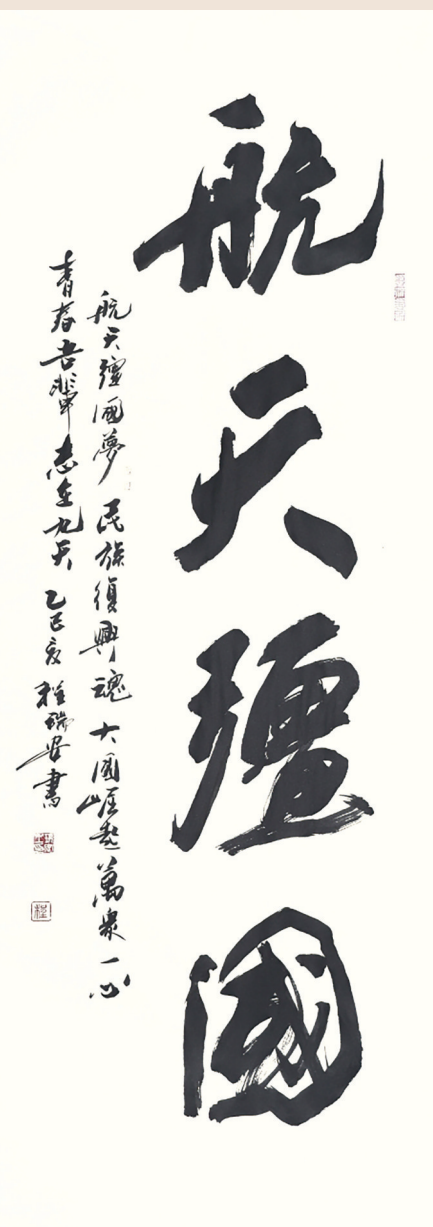 航天彊國
航天彊國夢 民族復興魂 大國崛起 萬衆一心
青春吾輩 志在九天 乙巳夏 程瑞安書
程